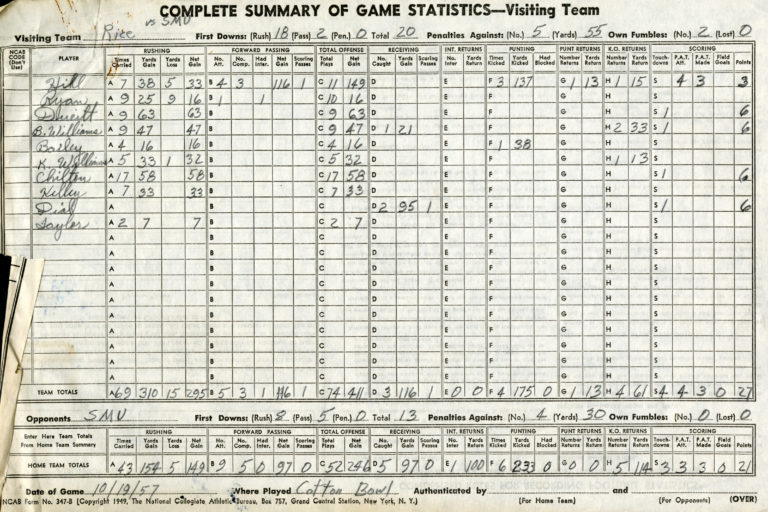 COMPLETE SUMMARY OF GAME STATISTICS—Visiting Team
vs SMU
Visiting Team Rice First Downs: (Rush) 18 (Pass) 2 (Pen.) 0 Total 20 Penalties Against: (No.) 5 (Yards) 55 Own Fumbles: (No.) 2 (Lost) 0
NCAB CODE (Don't Use) PLAYER RUSHING FORWARD PASSING TOTAL OFFENSE RECEIVING INT. RETURNS PUNTING PUNT RETURNS K.O. RETURNS SCORING
Times Carried Yards Gain Yards Loss Net Gain No. Att. No. Comp. Had Inter. Net Gain Scoring Passes Total Plays Net Gain No. Caught Yards Gain Scoring Passes No. Inter Yards Return Times Kicked Yards Kicked Had Blocked Number Returns Yards Return Number Returns Yards Return Touch-downs P.A.T. Att. P.A.T. Made Field Goals Points
Hill A 7 38 5 33 B 4 3 116 1 C 11 149 D E F 3 137 G 1 13 H 1 15 S 4 3 3
Ryan A 9 25 9 16 B 1 1 C 10 16 D E F G H S
Dwight A 9 63 63 B C 9 63 D E F G H S 1 6
B. Williams A 9 47 47 B C 9 47 D 1 21 E F G H 2 33 S 1 6
Bailey A 4 16 16 B C 4 16 D E F 1 38 G H S
K. Williams A 5 33 1 32 B C 5 32 D E F G H 1 13 S
Chilton A 17 58 58 B C 17 58 D E F G H S 1 6
Kelley A 7 33 33 B C 7 33 D E F G H S
Dial A B C D 2 95 1 E F G H S 1 6
Taylor A 2 7 7 B C 2 7 D E F G H S
A B C D E F G H S
A B C D E F G H S
A B C D E F G H S
A B C D E F G H S
A B C D E F G H S
A B C D E F G H S
A B C D E F G H S
A B C D E F G H S
A B C D E F G H S
A B C D E F G H S
A B C D E F G H S
TEAM TOTALS A 69 310 15 295 B 5 3 1 116 1 C 74 411 D 3 116 1 E 0 0 F 4 175 0 G 1 13 H 4 61 S 4 4 3 0 27
Opponents SMU First Downs: (Rush) 8 (Pass) 5 (Pen.) 0 Total 13 Penalties Against: (No.) 4 (Yards) 30 Own Fumbles: (No.) 0 (Lost) 0
Enter Here Team Totals From Home Team Summary RUSHING FORWARD PASSING TOTAL OFFENSE RECEIVING INT. RETURNS PUNTING PUNT RETURNS K.O. RETURNS SCORING
Times Carried Yards Gain Yards Loss Net Gain No. Att. No. Comp. Had Inter. Net Gain Scoring Passes Total Plays Net Gain No. Caught Yards Gain Scoring Passes No. Inter Yards Return Times Kicked Yards Kicked Had Blocked Number Returns Yards Return Number Returns Yards Return Touch-downs P.A.T. Att. P.A.T. Made Field Goals Points
HOME TEAM TOTALS A 43 154 5 149 B 9 5 0 97 0 C 52 246 D 5 97 0 E 1 100 F 6 233 0 G 0 0 H 5 114 S 3 3 3 0 21
Date of Game 10/19/57 Where Played Cotton Bowl Authenticated by and
NCAB Form No. 347-B [Copyright 1949, The National Collegiate Athletic Bureau, Box 757, Grand Central Station, New York, N. Y.] (For Home Team) (For Opponents) (OVER)